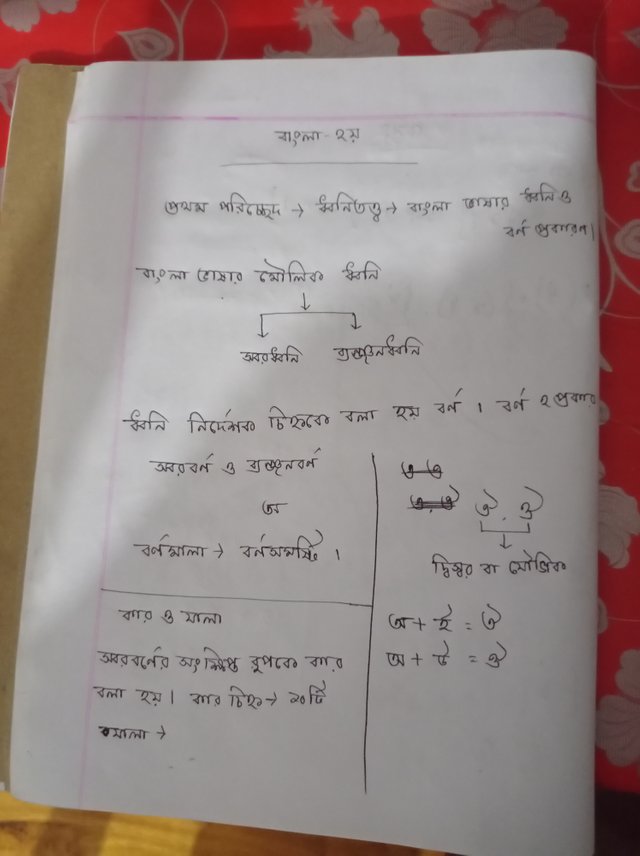 বাংলা - ২য়
প্রথম পরিচ্ছেদ → ধ্বনিতত্ত্ব → বাংলা ভাষার ধ্বনি ও
বর্ণ প্রকরণ।
বাংলা ভাষার মৌলিক ধ্বনি
↓
স্বরধ্বনি ব্যঞ্জনধ্বনি
ধ্বনি নির্দেশক চিহ্নকে বলা হয় বর্ণ । বর্ণ ২ প্রকার
স্বরবর্ণ ও ব্যঞ্জনবর্ণ
অ
বর্ণমালা → বর্ণসমষ্টি ।
কার ও মালা
স্বরবর্ণের সংক্ষিপ্ত রূপকে কার
বলা হয়। কার চিহ্ন → ১০টি
মালা →
ঐ . ঔ
↓
দ্বিস্বর বা যৌগিক
অ + ই = ঐ
অ + উ = ঔ